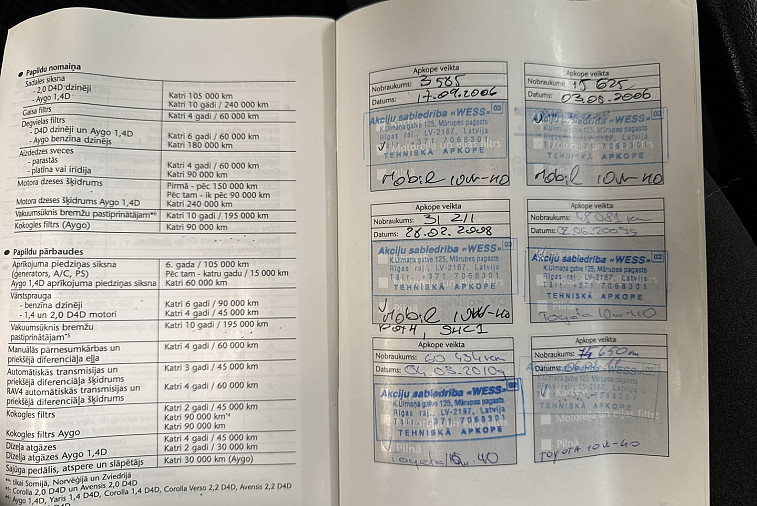 ● Papildu nomaiņa
Sadales siksna
- 2,0 D4D dzinēji Katri 105 000 km
- Aygo 1,4D Katri 10 gadi / 240 000 km
Gaisa filtrs Katri 4 gadi / 60 000 km
Degvielas filtrs
- D4D dzinēji un Aygo 1,4D Katri 6 gadi / 60 000 km
- Aygo benzīna dzinējs Katri 180 000 km
Aizdedzes sveces
- parastās Katri 4 gadi / 60 000 km
- platīna vai irīdija Katri 90 000 km
Motora dzeses šķidrums Pirmā - pēc 150 000 km
Pēc tam - ik pēc 90 000 km
Motora dzeses šķidrums Aygo 1,4D Katri 240 000 km
Vakuumsūknis bremžu pastiprinātājam Katri 10 gadi / 195 000 km
Kokogles filtrs (Aygo) Katri 90 000 km
● Papildu pārbaudes
Aprīkojuma piedziņas siksna 6. gada / 105 000 km
(ģenerators, A/C, PS) Pēc tam - katru gadu / 15 000 km
Aygo 1,4D aprīkojuma piedziņas siksna Katri 60 000 km
Vārstsprauga
- benzīna dzinēji Katri 6 gadi / 90 000 km
- 1,4 un 2,0 D4D motori Katri 4 gadi / 45 000 km
Vakuumsūknis bremžu Katri 10 gadi / 195 000 km
pastiprinātājam*⁵
Manuālās pārnesumkārbas un Katri 4 gadi / 60 000 km
priekšējā diferenciāļa eļļa
Automātiskās transmisijas un Katri 3 gadi / 45 000 km
priekšējā diferenciāļa šķidrums
RAV4 automātiskās transmisijas un Katri 4 gadi / 60 000 km
priekšējā diferenciāļa šķidrums
Kokogles filtrs Katri 2 gadi / 45 000 km
Katri 90 000 km*⁴
Kokogles filtrs Aygo Katri 90 000 km
Dīzeļa atgāzes Katri 4 gadi / 45 000 km
Dīzeļa atgāzes Aygo 1,4D Katri 2 gadi / 30 000 km
Sajūga pedālis, atspere un slāpētājs Katri 30 000 km (Aygo)
tikai Somijā, Norvēģijā un Zviedrijā
Corolla 2,0 D4D un Avensis 2,0 D4D
Aygo 1,4D, Yaris 1,4 D4D, Corolla 1,4 D4D, Corolla Verso 2,2 D4D, Avensis 2,2 D4D
Apkope veikta
Nobraukums: 3 585
Datums: 17.09.2006
Akciju sabiedrība «WESS» 03
K.Ulmaņa gatve 125, Mārupes pagasts
Rīgas raj., LV-2167, Latvija
TEHNISKĀ APKOPE
Mobil 10W-40
Apkope veikta
Nobraukums: 15 625
Datums:
K.Ulmaņa gatve 125, Mārupes pagasts
Rīgas raj., LV-2167, Latvija
TEHNISKĀ APKOPE
Mobil 10W-40
Apkope veikta
Nobraukums: 31 211
Datums: 26.02.2008
Akciju sabiedrība «WESS» 03
K.Ulmaņa gatve 125, Mārupes pagasts
Rīgas raj., LV-2167, Latvija
TEHNISKĀ APKOPE
Mobil 10W-40
Apkope veikta
Nobraukums: 48 081 km
Datums:
Akciju sabiedrība «WESS» 02
K.Ulmaņa gatve 125, Mārupes pagasts
Rīgas raj., LV-2167, Latvija
Tālr. +371 7068301
TEHNISKĀ APKOPE
Toyota 10w-40
Apkope veikta
Nobraukums: 60 434 km
Datums: 04.03.2010g
Akciju sabiedrība «WESS»
K.Ulmaņa gatve 125, Mārupes pagasts
Rīgas raj., LV-2167, Latvija
Tālr. +371 7068301
TEHNISKĀ APKOPE
Pilnā
Toyota 10w-40
Apkope veikta
Nobraukums: 74 650 km
Datums:
TEHNISKĀ APKOPE
Pilnā
TOYOTA 10W-40